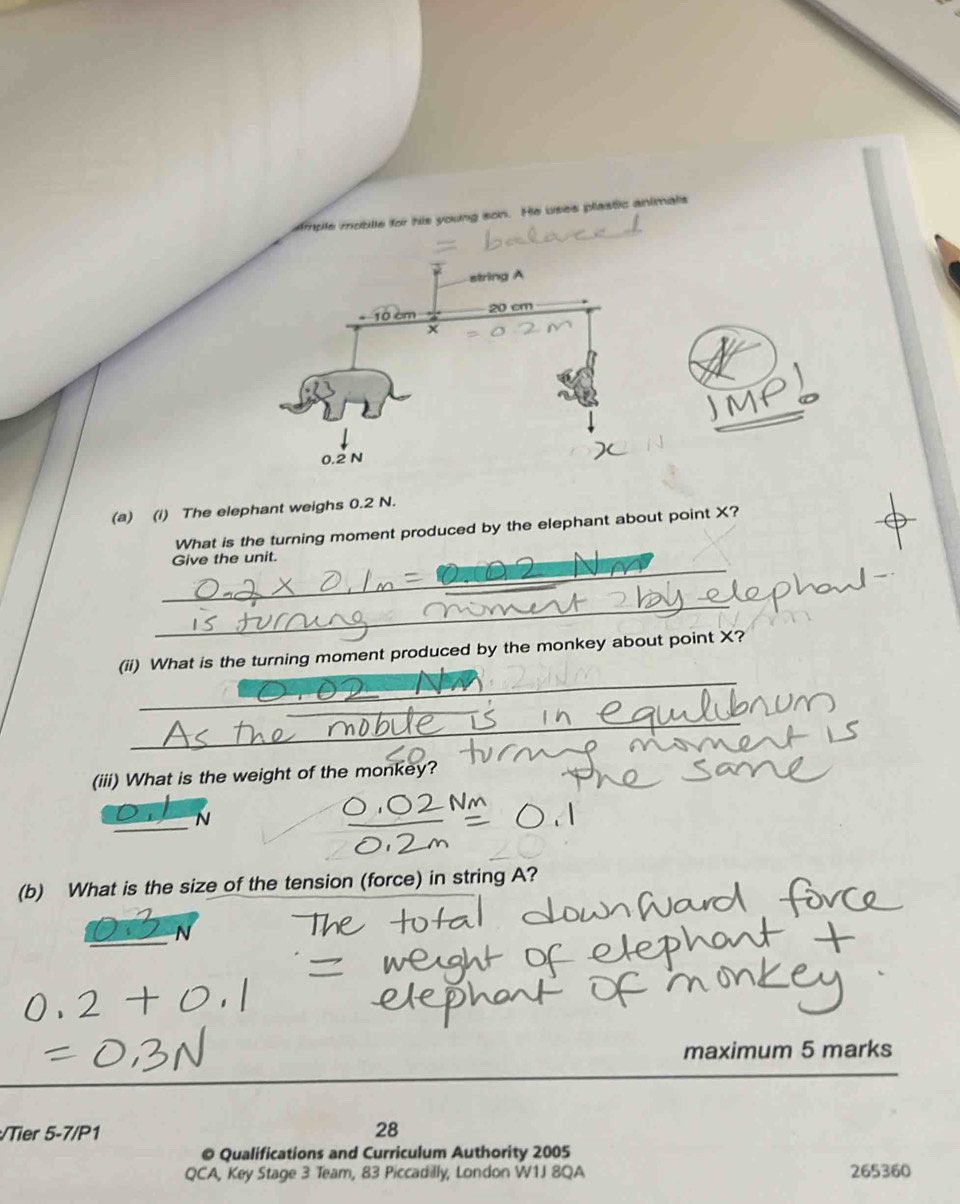 mobile for his young son. He uses plastic animals
= balanced
string A
10 cm
20 cm
X
= 0.2 m
IMP!
0.2 N
x N
(a) (i) The elephant weighs 0.2 N.
What is the turning moment produced by the elephant about point X?
Give the unit.
0.2 x 0.1m = 0.02 Nm
is turning moment by elephant
(ii) What is the turning moment produced by the monkey about point X?
0.02 Nm
As the mobile is in equilibrium
so turning moment is
the same
(iii) What is the weight of the monkey?
0.1 N
0.02 Nm = 0.1
0.2m
(b) What is the size of the tension (force) in string A?
0.3 N
The total downward force
= weight of elephant +
elephant of monkey.
0.2 + 0.1
= 0.3N
maximum 5 marks
/Tier 5-7/P1
28
© Qualifications and Curriculum Authority 2005
QCA, Key Stage 3 Team, 83 Piccadilly, London W1J 8QA
265360